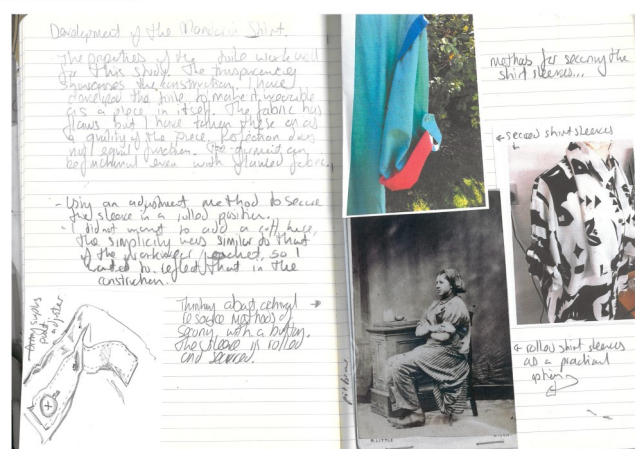 Development of the Mandarin Shirt.
- The properties of the toile work well
for this study. The transparencies
showcases the construction. I have
developed the toile to make it wearable
as a piece in itself. The fabric has
flaws but I have taken these on as
a quality of the piece. Perfection does
not equal function. The garment can
be functional even with flawed fabric.
- Using an adjustment method to secure
the sleeve in a rolled position.
- I did not want to add a cuff here,
the simplicity was similar to that
of the workwear, so I
wanted to reflect that in the
construction.
Thinking about
methods of
securing with a button.
The sleeve is rolled
and secured.
adjuster
methods for securing the
shirt sleeves...
← secured shirt sleeves
← rolled shirt sleeves
as a practical
option
pit brow
R.LITTLE